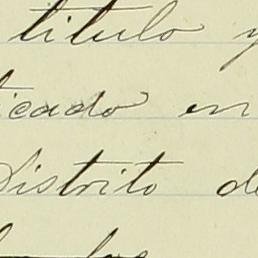 titulo y
icado en
Distrito de